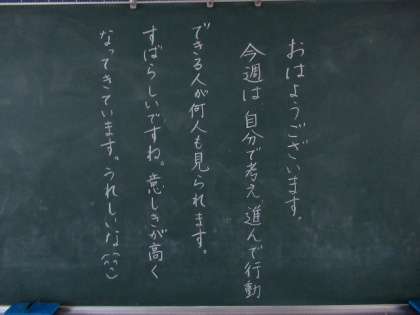 おはようございます。
今週は自分で考え進んで行動
できる人が何人も見られます。
すばらしいですね。意しきが高く
なってきています。うれしいな(^^)